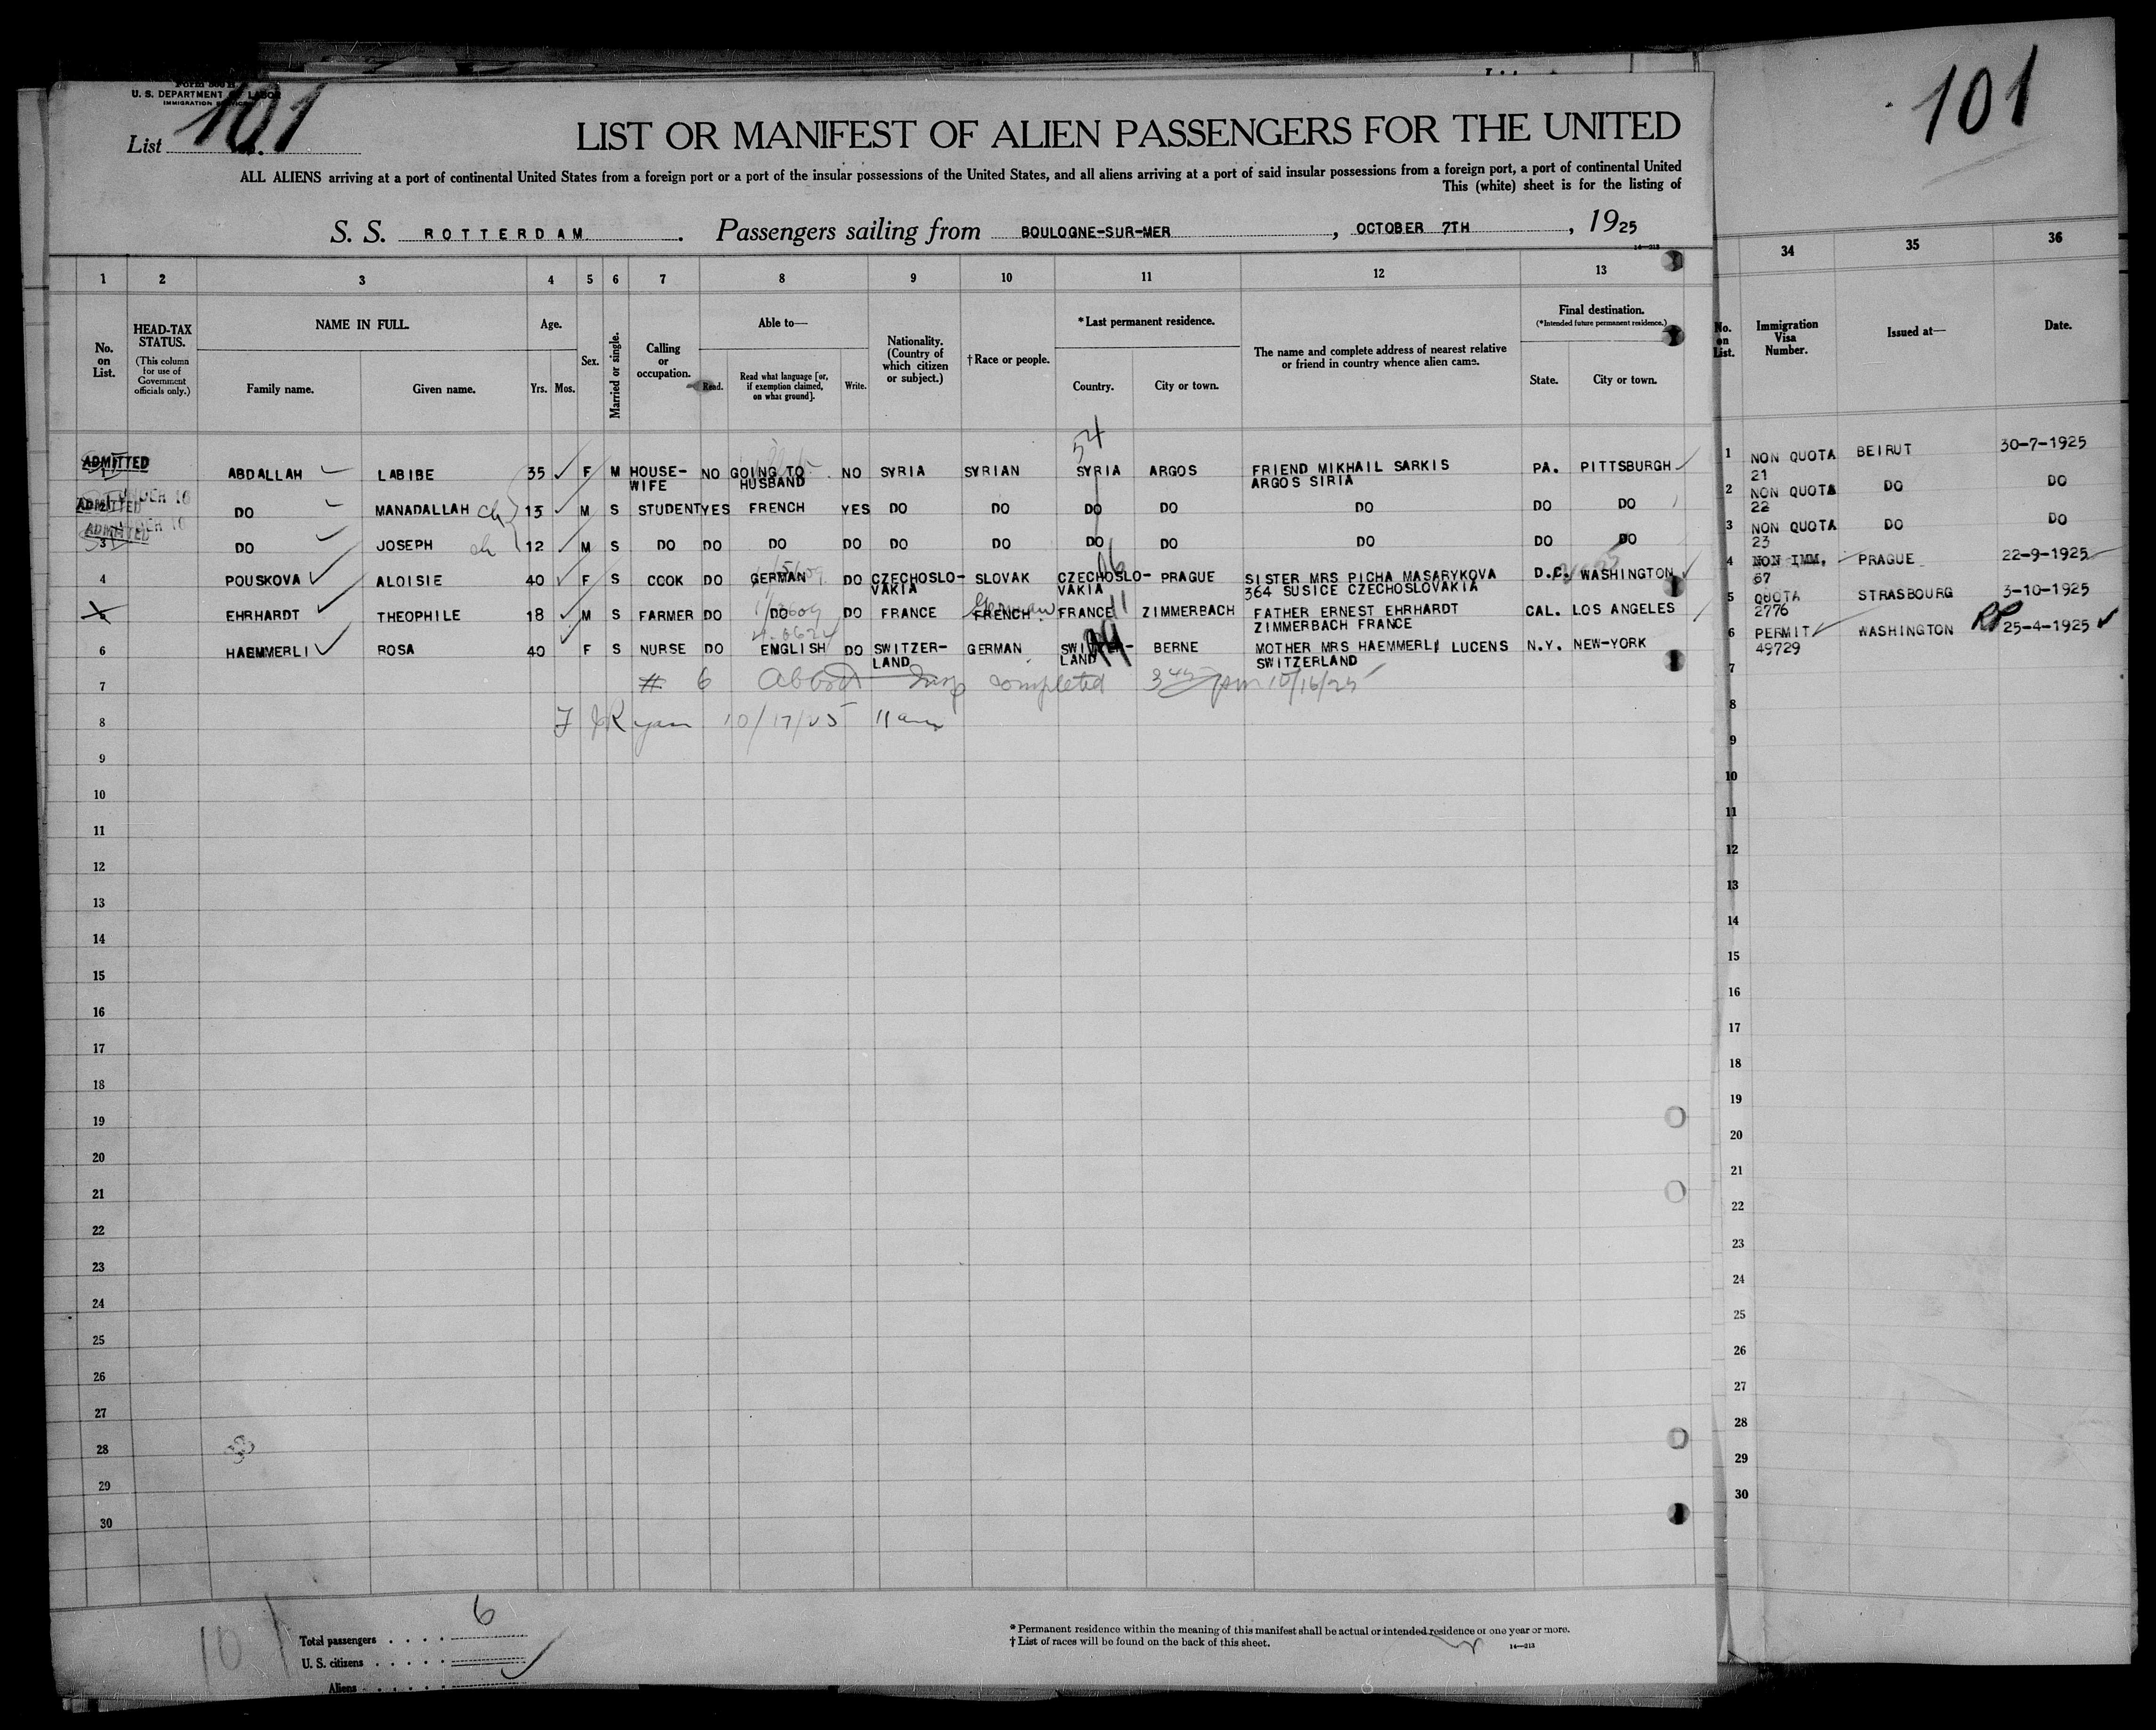 U. S. DEPARTMENT OF LABOR
IMMIGRATION SERVICE
List 101
101
LIST OR MANIFEST OF ALIEN PASSENGERS FOR THE UNITED
ALL ALIENS arriving at a port of continental United States from a foreign port or a port of the insular possessions of the United States, and all aliens arriving at a port of said insular possessions from a foreign port, a port of continental United
This (white) sheet is for the listing of
S. S. ROTTERDAM. Passengers sailing from BOULOGNE-SUR-MER, OCTOBER 7TH, 1925
1 2 3 4 5 6 7 8 9 10 11 12 13 34 35 36
No. on List. HEAD-TAX STATUS. (This column for use of Government officials only.) NAME IN FULL. Family name. Given name. Age. Yrs. Mos. Sex. Married or single. Calling or occupation. Able to— Read. Read what language [or, if exemption claimed, on what ground]. Write. Nationality. (Country of which citizen or subject.) †Race or people. *Last permanent residence. Country. City or town. The name and complete address of nearest relative or friend in country whence alien came. Final destination. (*Intended future permanent residence.) State. City or town. No. on List. Immigration Visa Number. Issued at— Date.
54
ADMITTED 1 ABDALLAH LABIBE 35 F M HOUSE-WIFE NO GOING TO HUSBAND NO SYRIA SYRIAN SYRIA ARGOS FRIEND MIKHAIL SARKIS ARGOS SIRIA PA. PITTSBURGH 1 NON QUOTA 21 BEIRUT 30-7-1925
ADMITTED UNDER 16 DO MANADALLAH ch 13 M S STUDENT YES FRENCH YES DO DO DO DO DO DO DO 2 NON QUOTA 22 DO DO
ADMITTED UNDER 16 3 DO JOSEPH ch 12 M S DO DO DO DO DO DO DO DO DO DO DO 3 NON QUOTA 23 DO DO
4 POUSKOVA ALOISIE 40 F S COOK DO GERMAN DO CZECHOSLO-VAKIA SLOVAK CZECHOSLO-VAKIA PRAGUE SISTER MRS PICHA MASARYKOVA 364 SUSICE CZECHOSLOVAKIA D.C. WASHINGTON 4 NON IMM. 67 PRAGUE 22-9-1925
EHRHARDT THEOPHILE 18 M S FARMER DO DO DO FRANCE FRENCH German FRANCE 11 ZIMMERBACH FATHER ERNEST EHRHARDT ZIMMERBACH FRANCE CAL. LOS ANGELES 5 QUOTA 2776 STRASBOURG 3-10-1925
6 HAEMMERLI ROSA 40 F S NURSE DO ENGLISH DO SWITZER-LAND GERMAN SWITZER-LAND BERNE MOTHER MRS HAEMMERLI LUCENS SWITZERLAND N.Y. NEW-YORK 6 PERMIT 49729 WASHINGTON 25-4-1925
7 # 6 Insp completed 3 45 pm 10/16/25 7
8 F J Ryan 10/17/25 11 am 8
9 9
10 10
11 11
12 12
13 13
14 14
15 15
16 16
17 17
18 18
19 19
20 20
21 21
22 22
23 23
24 24
25 25
26 26
27 27
28 28
29 29
30 30
101
Total passengers . . . . 6
U. S. citizens . . . . .
Aliens . . . . . .
* Permanent residence within the meaning of this manifest shall be actual or intended residence of one year or more.
† List of races will be found on the back of this sheet.
14—213